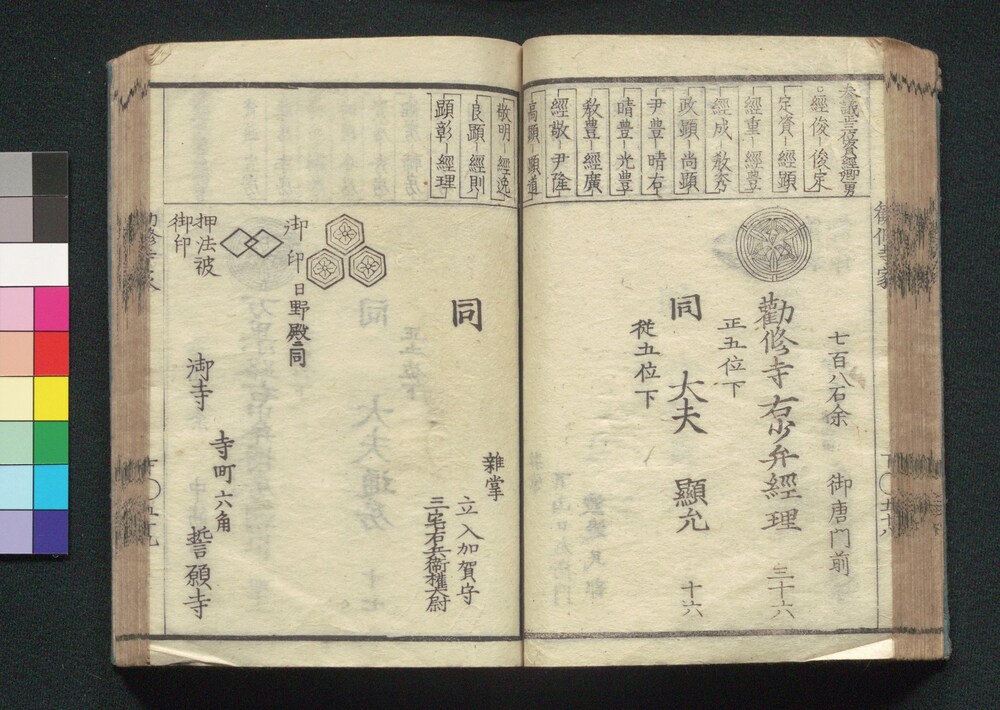 勸修寺家
参議正三位資經卿男
○經俊 俊定
定資 經顯
經重 經豊
經成 教秀
政顯 尚顯
尹豊 晴右
晴豊 光豊
教豊 經廣
經敬 尹隆
高顯 顯道
敬明 經逸
良顯 經則
顯彰 經理
七百八石余 御唐門前
勸修寺右少弁經理 三十六
正五位下
同 大夫 顯允 十六
従五位下
同
雜掌 立入加賀守
三宅右兵衞權大尉
御印 日野殿ニ同
押法被
御印
御寺 寺町六角 誓願寺